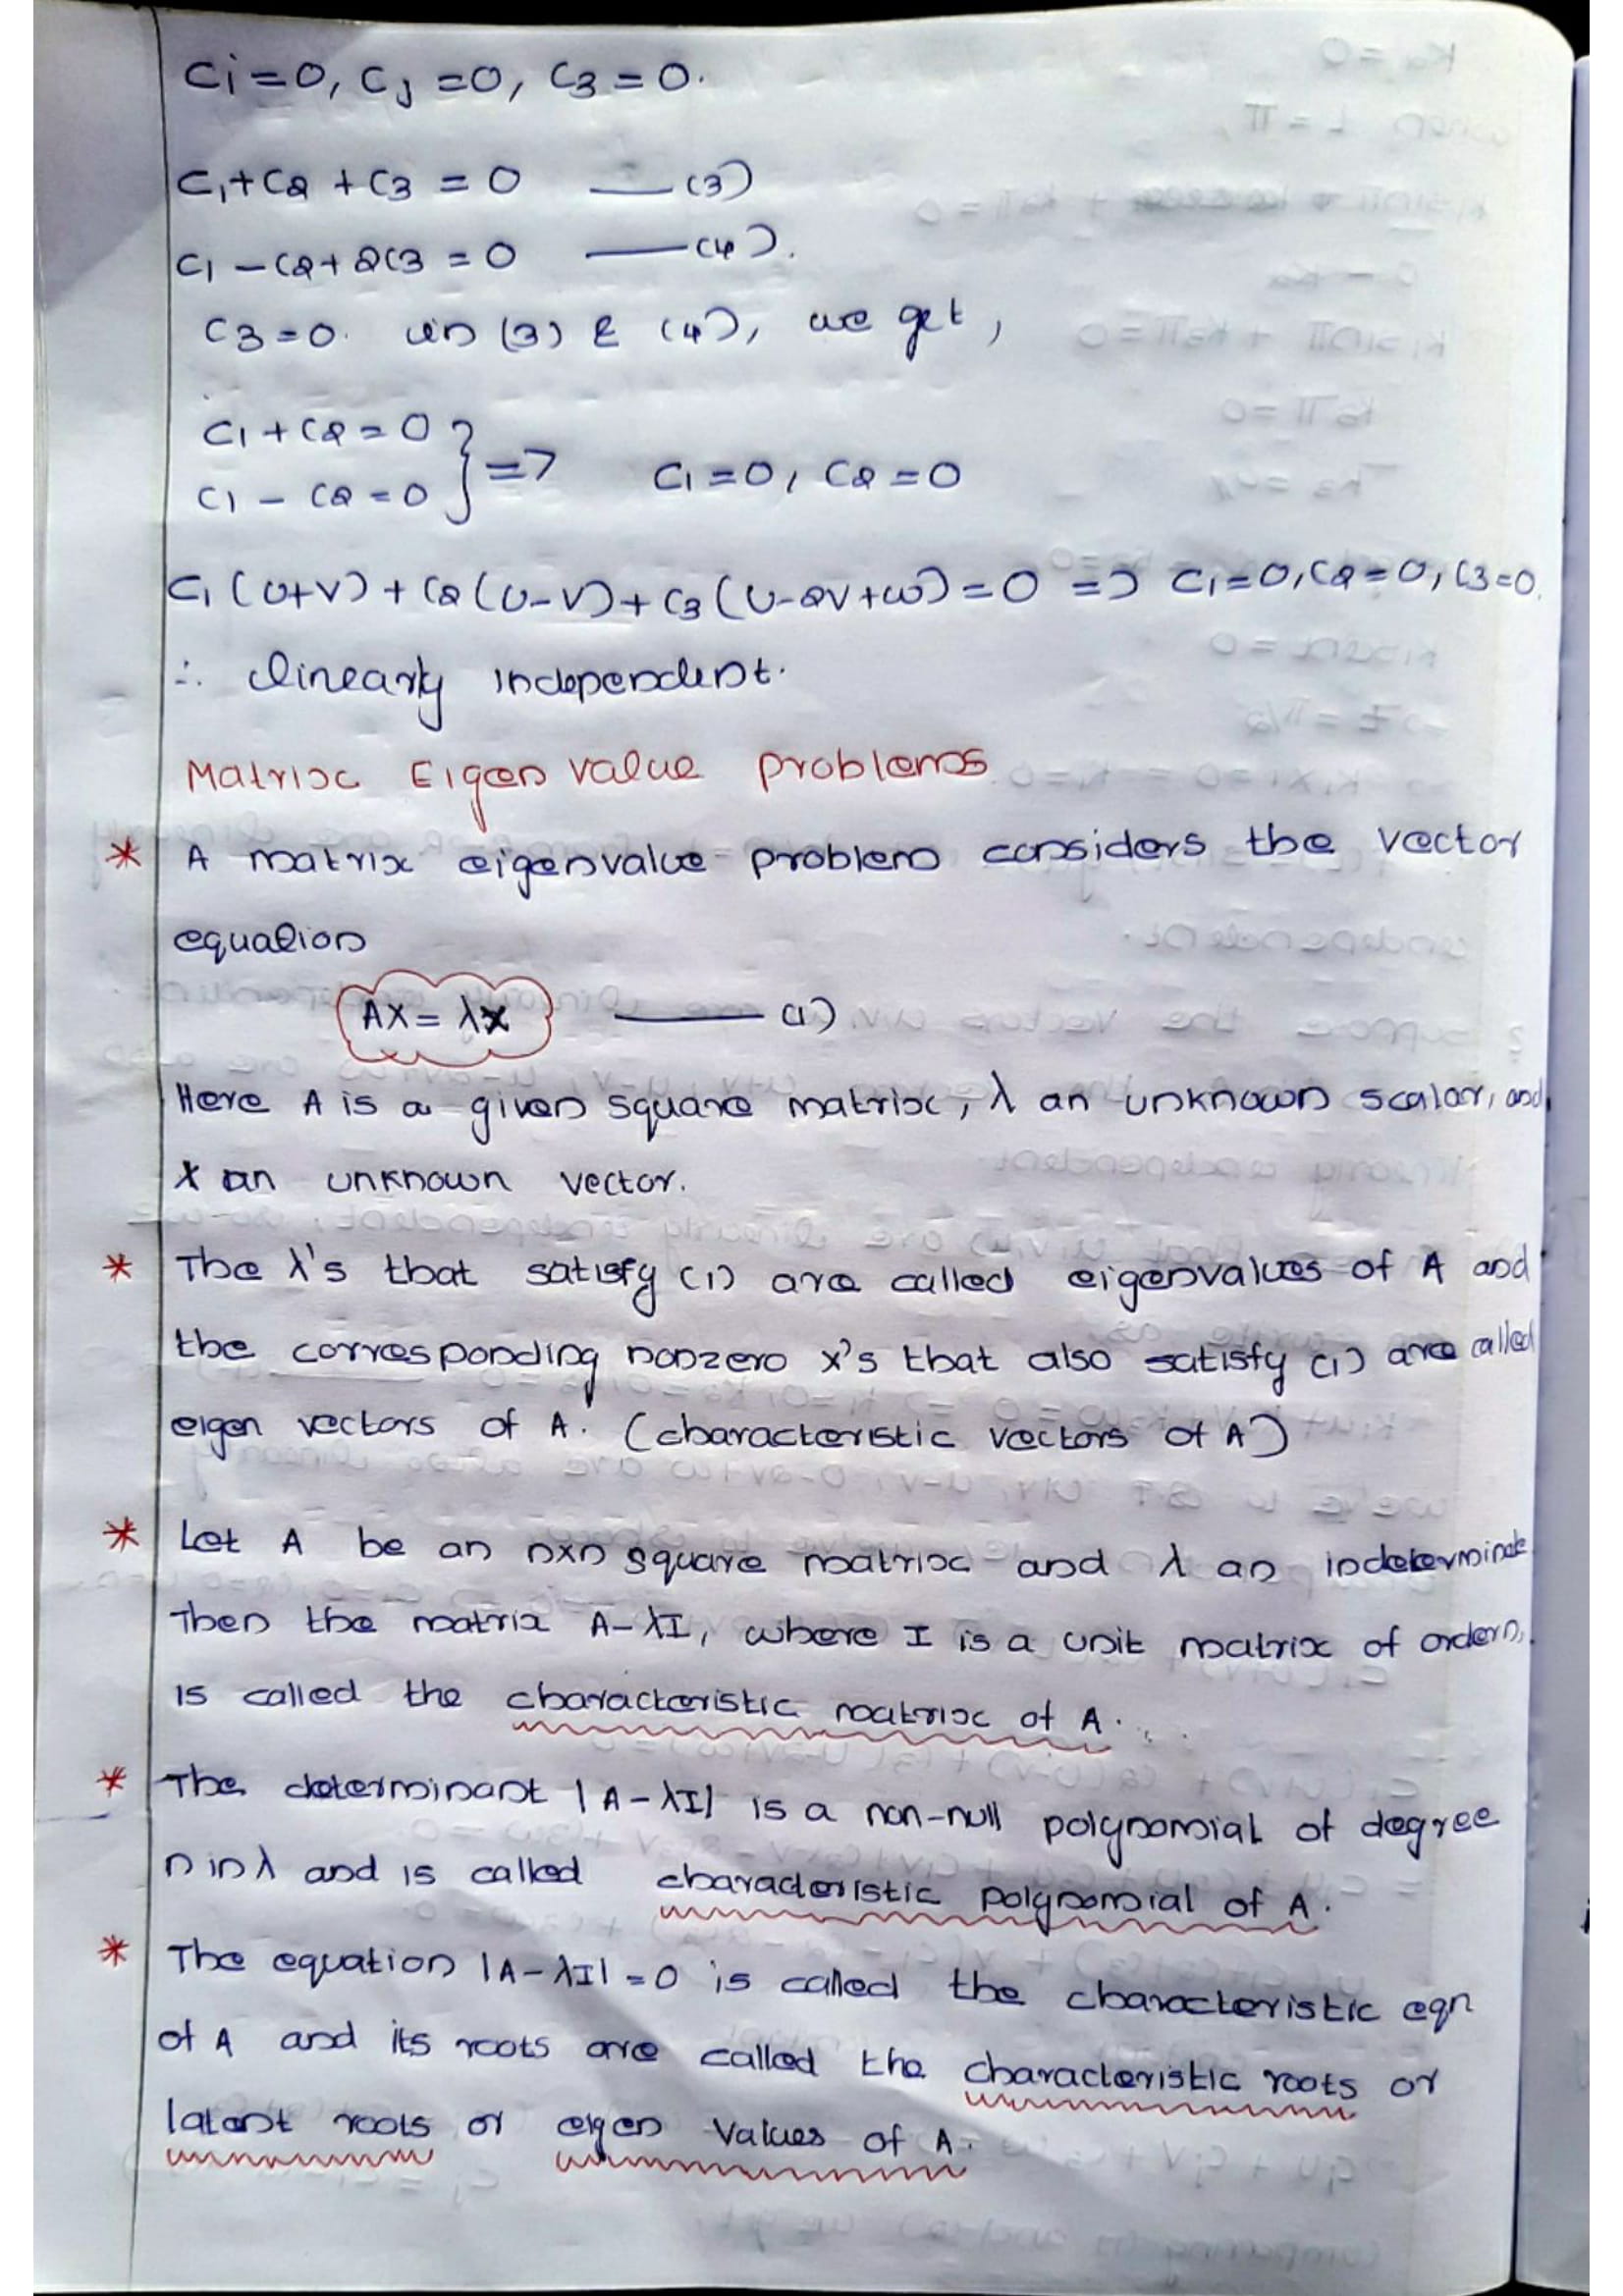 Ci=0, Cj=0, C3=0.
C1+C2+C3=0 —(3)
C1-C2+2C3=0 —(4).
C3=0. in (3) & (4), we get,
C1+C2=0
C1-C2=0 } => C1=0, C2=0
C1(U+V)+C2(U-V)+C3(U-2V+W)=0 => C1=0, C2=0, C3=0.
∴ linearly independent.
Matrix Eigen value problems.
* A matrix eigenvalue problem considers the vector
equation
AX=λX —(1)
Here A is a given square matrix, λ an unknown scalar, and
X an unknown vector.
* The λ's that satisfy (1) are called eigenvalues of A and
the corresponding nonzero x's that also satisfy (1) are called
eigen vectors of A. (characteristic vectors of A)
* Let A be an nxn square matrix and λ an indeterminate
Then the matrix A-λI, where I is a unit matrix of order n,
is called the characteristic matrix of A.
* The determinant |A-λI| is a non-null polynomial of degree
n in λ and is called characteristic polynomial of A.
* The equation |A-λI|=0 is called the characteristic eqn
of A and its roots are called the characteristic roots or
latent roots or eigen values of A.